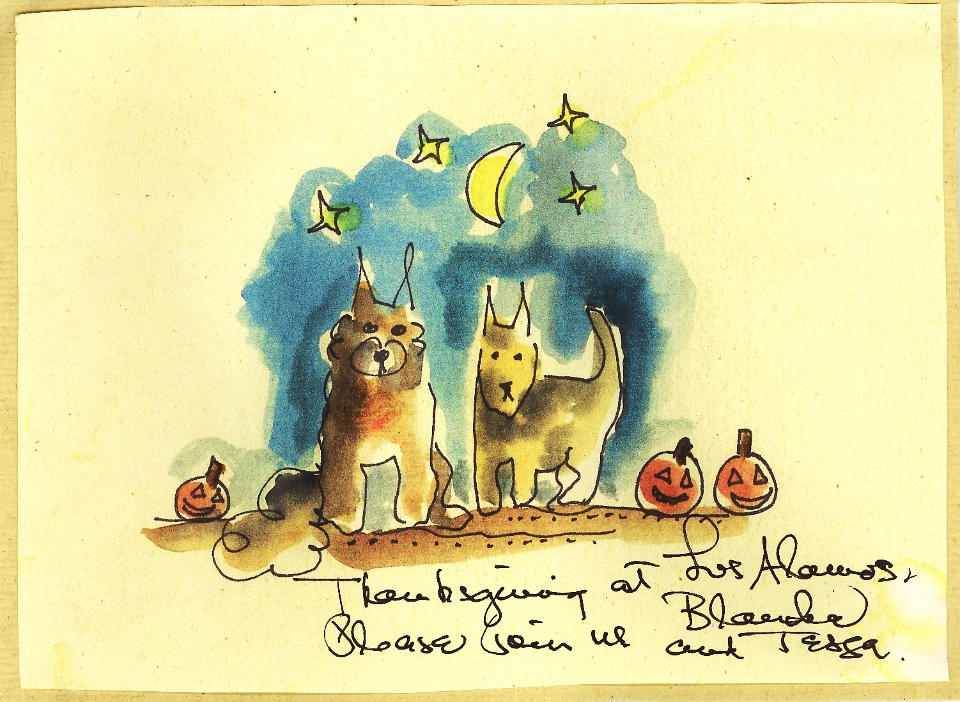 Thanksgiving at Los Alamos,
Please join us Blandia
and Tessa.